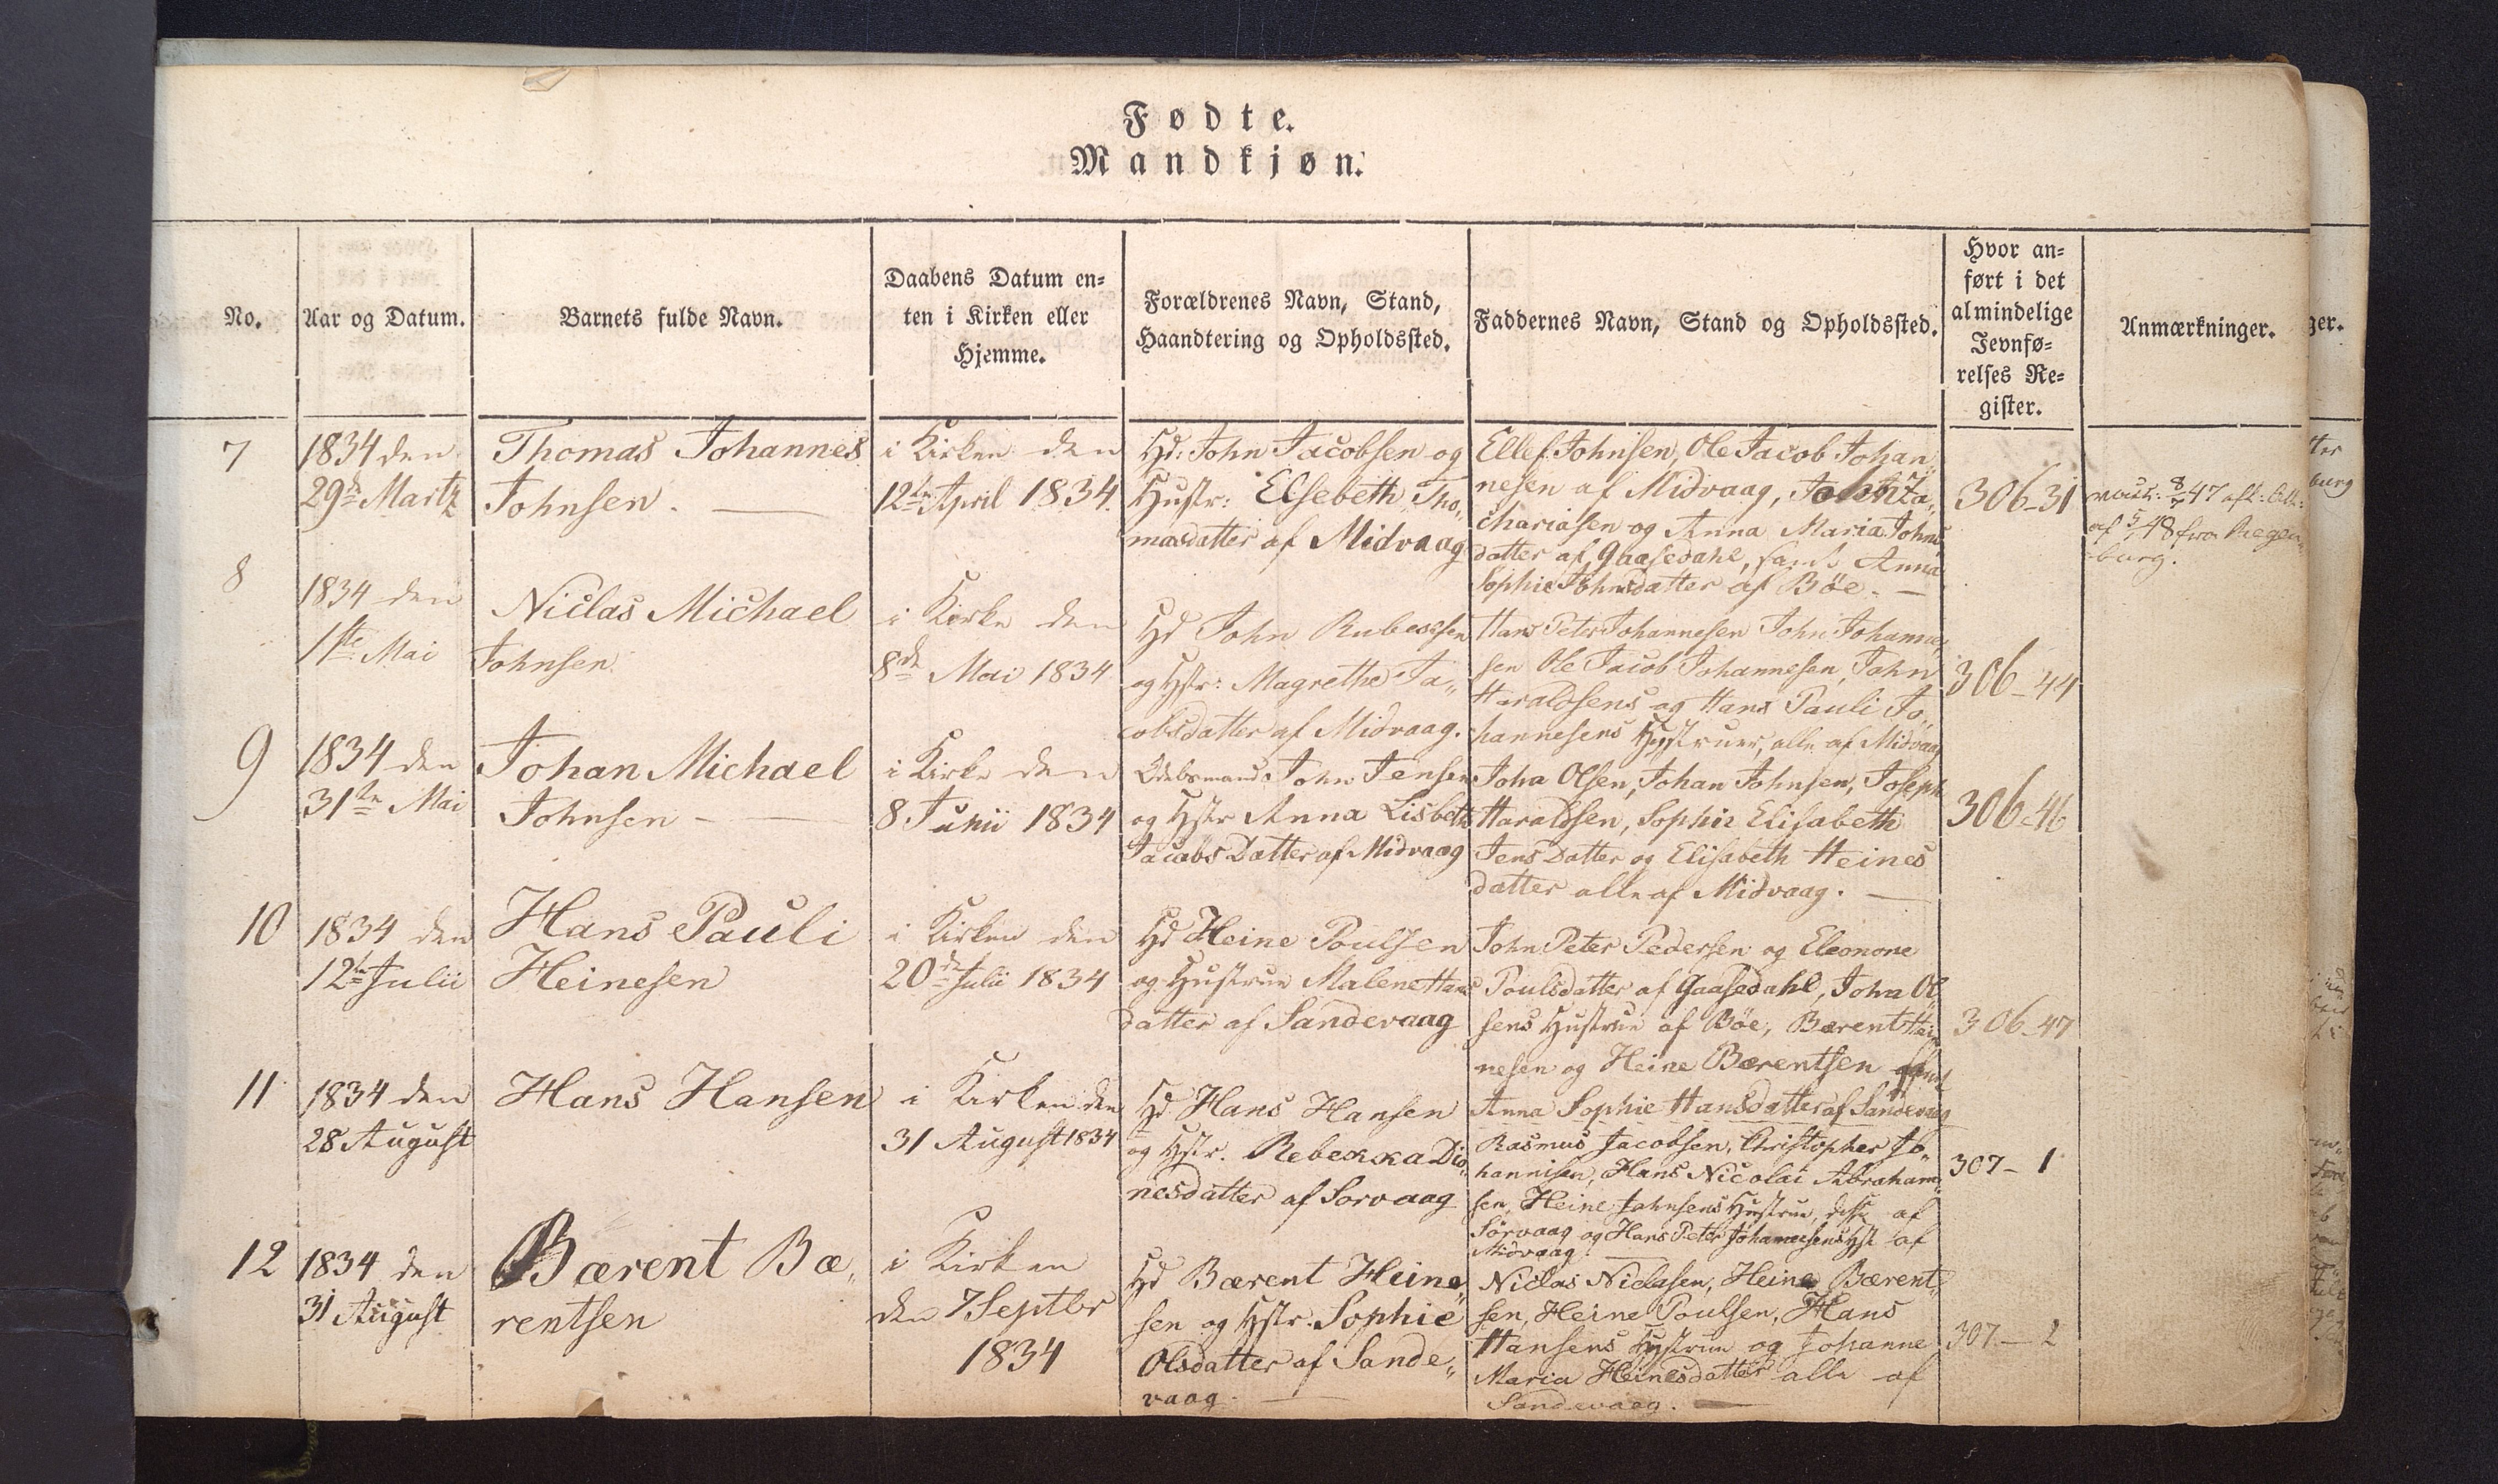 Fødte.
Mandkjøn.
No.
Aar og Datum.
Barnets fulde Navn.
Daabens Datum en=
ten i Kirken eller
Hjemme.
Forældrenes Navn, Stand,
Haandtering og Opholdssted.
Faddernes Navn, Stand og Opholdssted.
Hvor an=
ført i det
almindelige
Jevnfø=
relses Re=
gister.
Anmærkninger.
7
1834 den
29de Martz
Thomas Johannes
Johnsen. —
i Kirken den
12te April 1834.
Hd: John Jacobsen og
Hustr: Elsebeth Tho„
masdatter af Midvaag
Ellef Johnsen, Ole Jacob Johan„
nesen af Midvaag, John Za„
chariasen og Anna Maria Johns
datter af Gaasedahl, samt Anna
Sophie Johnsdatter af Böe. —
306-31
8/5 47
af 48 fra Regens„
burg.
8
1834 den
1ste Mai
Niclas Michael
Johnsen.
i Kirke den
8de Mai 1834
Hd John Rubeksen
og Hstr: Magrethe Ja„
cobsdatter af Midvaag.
Hans Peter Johannesen John Johanne„
sen Ole Jacob Johannesen, John
Haraldsens og Hans Pauli Jo„
hannesens Hustruer, alle af Midvaag
306-44
9
1834 den
31te Mai
Johan Michael
Johnsen —
i Kirke den
8 Junii 1834
Odelsmand John Jensen
og Hstr Anna Lisbeth
Jacobs Datter af Midvaag
Joha Olsen, Johan Johnsen, Joseph
Haraldsen, Sophie Elisabeth
Jens Datter og Elisabeth Heines
datter alle af Midvaag. —
306-46
10
1834 den
12te Julii
Hans Pauli
Heinesen
i Kirken den
20de Julii 1834
Hd Heine Poulsen
og Hustrue Malene Hans
datter af Sandevaag
John Peter Pedersen og Eleonone
Poulsdatter af Gaasedahl, John Ol„
sens Hustrue af Böe, Bærent Hei„
nesen og Heine Bærentsen samt
Anna Sophie Hansdatter af Sandevaag
306-47
11
1834 den
28 August
Hans Hansen
i Kirken den
31 August 1834
Hd Hans Hansen
og Hstr. Rebekka Dio„
nesdatter af Sorvaag
Rasmus Jacobsen, Christopher Jo„
hannisen, Hans Nicolai Abraham„
sen, Heine Johnsens Hustrue, disse af
Sörvaag og Hans Peter Johannesens Hst af
Midvaag.
307-1
12
1834 den
31 August
Bærent Bæ„
rentsen
i Kirken
den 7 Septbr
1834
Hd Bærent Heine„
sen og Hstr. Sophie
Olsdatter af Sande„
vaag. —
Niclas Niclasen, Heine Bærent„
sen, Heine Poulsen, Hans
Hansens Hystrue og Johanne
Maria Heinesdatter alle af
Sandevaag. —
307-2